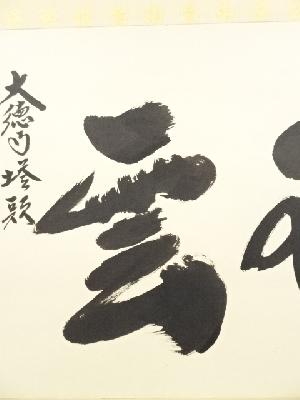 雲
大徳内塔頭